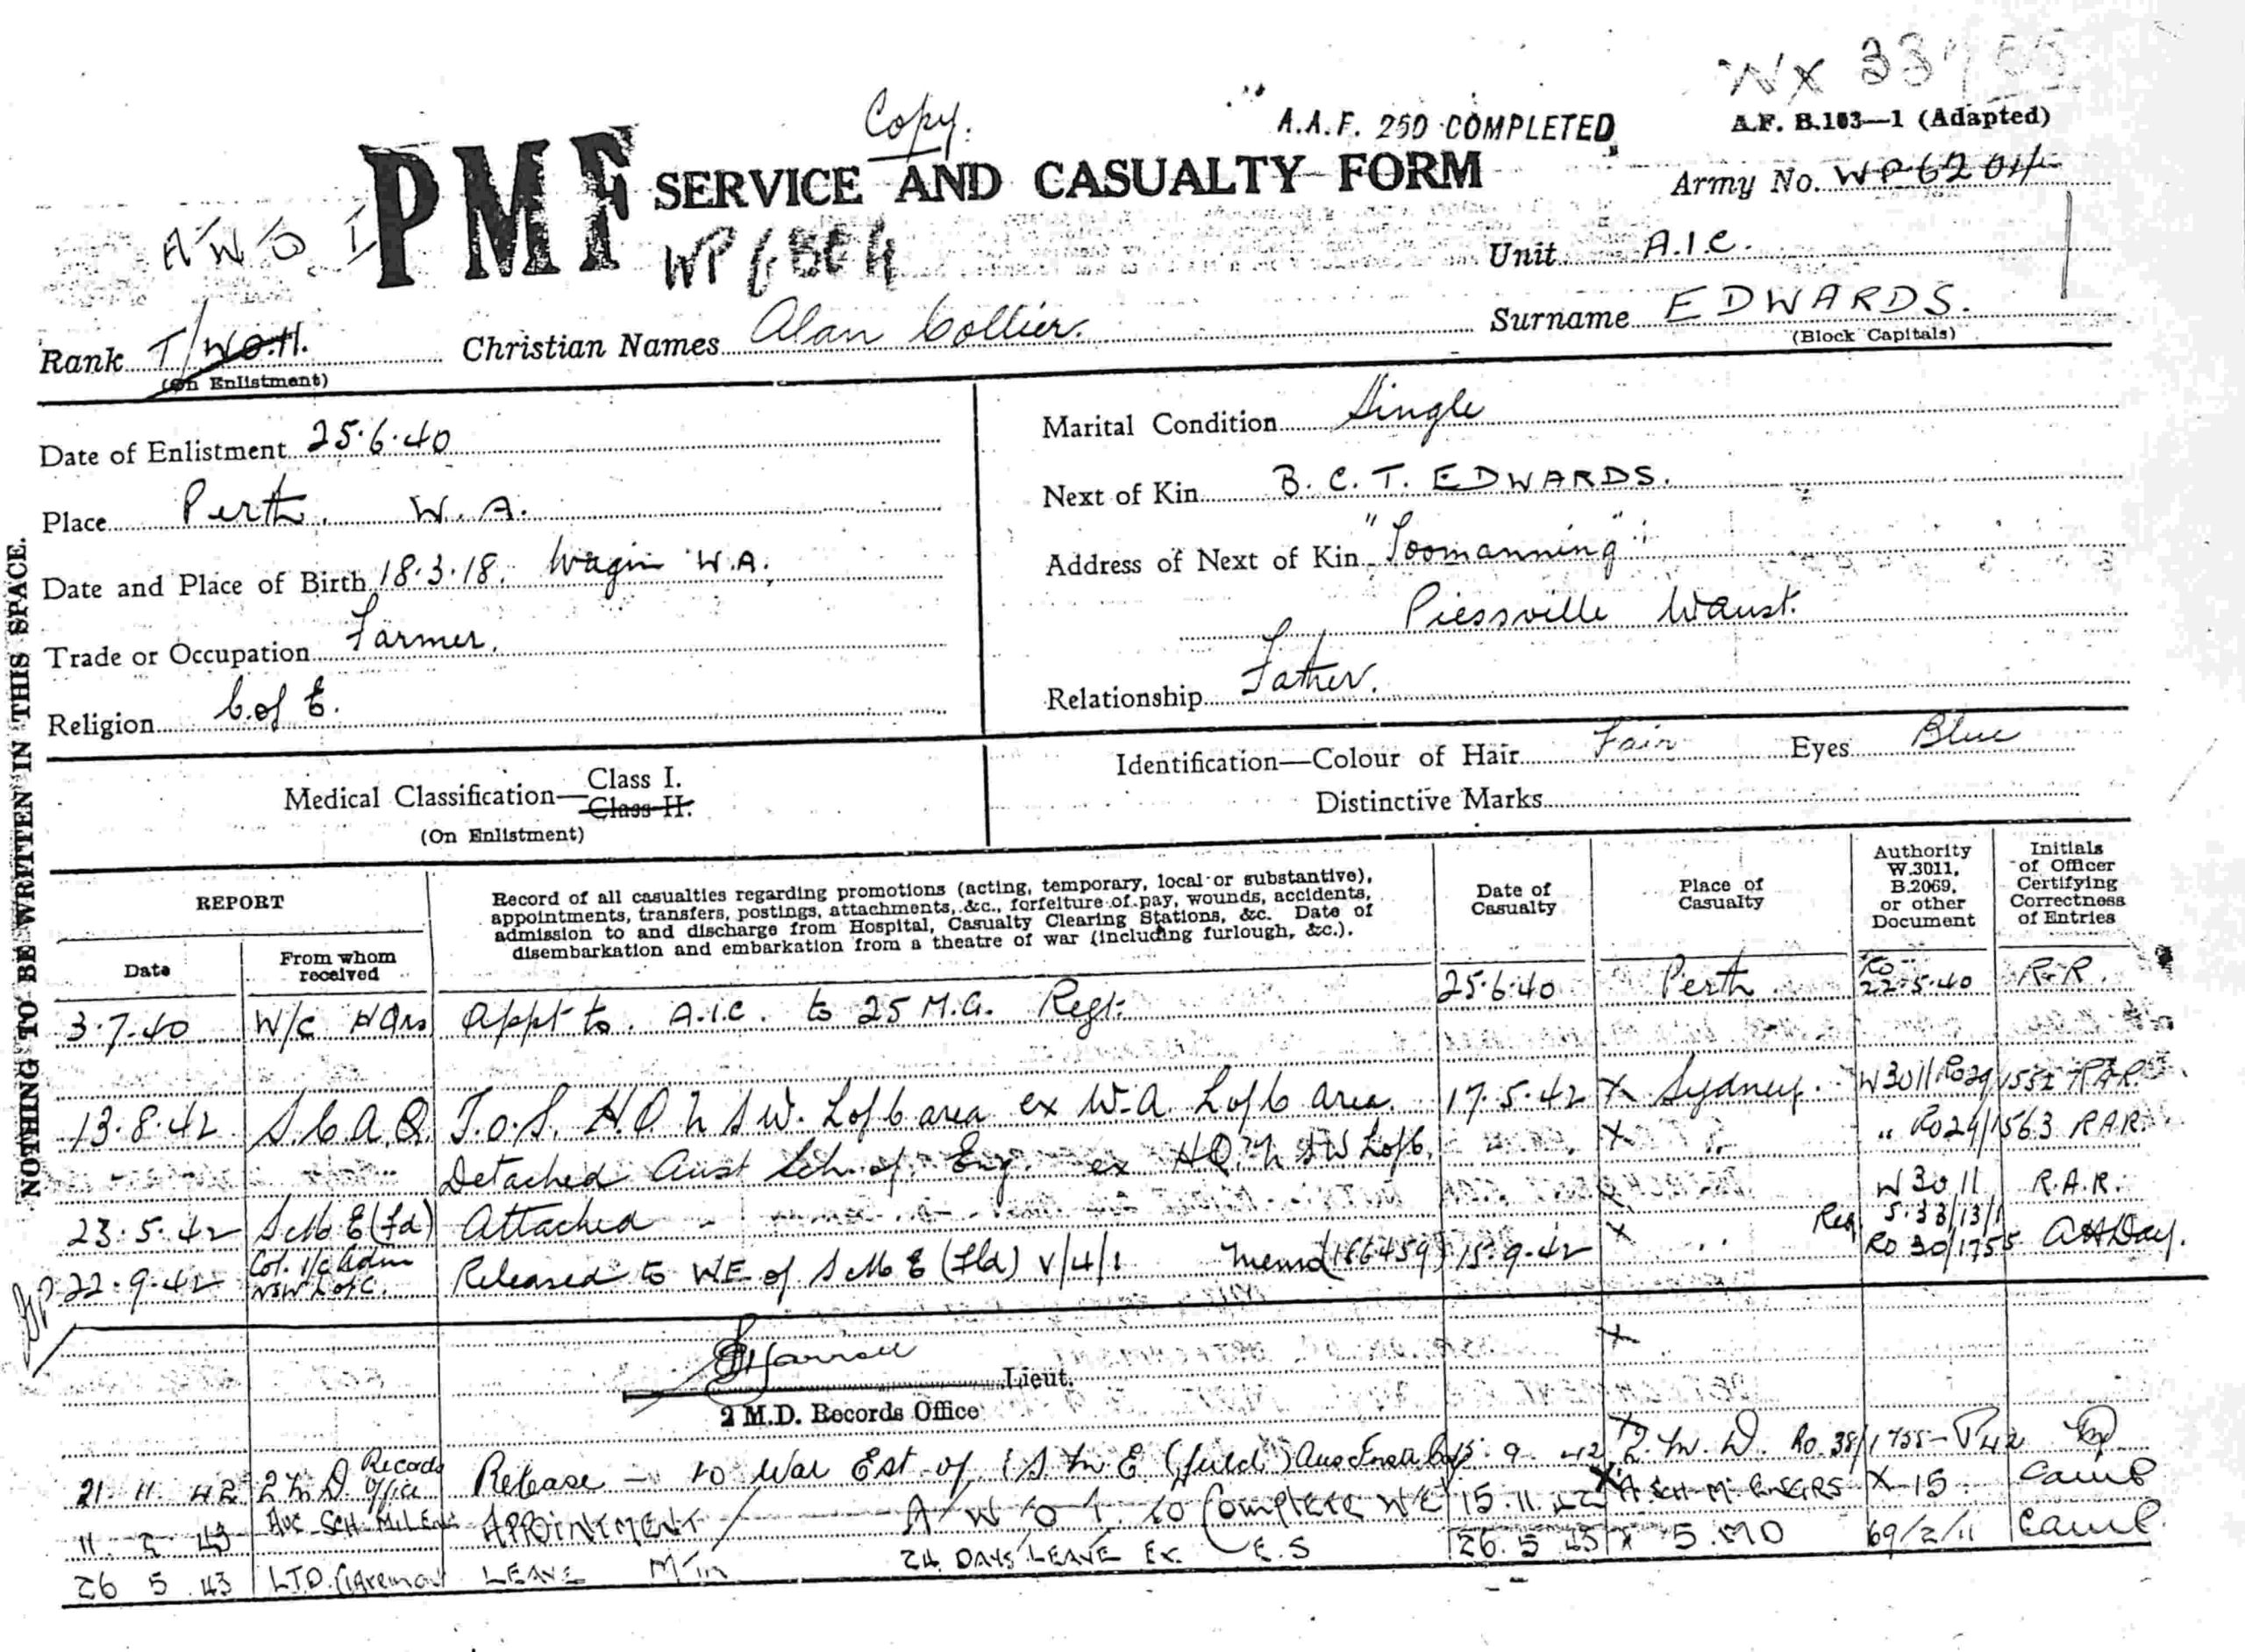 Copy.
A.A.F. 250 COMPLETED
A.F. B.103—1 (Adapted)
PMF SERVICE AND CASUALTY FORM
Army No. WP6204
A W O I
Unit A.I.C.
Rank T/W.O.II. Christian Names Alan Collier. Surname EDWARDS.
(On Enlistment) (Block Capitals)
Date of Enlistment 25.6.40
Place Perth. W.A.
Date and Place of Birth 18.3.18. Wagin W.A.
Trade or Occupation Farmer.
Religion C. of E.
Marital Condition Single
Next of Kin B. C. T. EDWARDS.
Address of Next of Kin "Toomanning"
Piessville W Aust.
Relationship Father.
Medical Classification— Class I.
Class II.
(On Enlistment)
Identification—Colour of Hair Fair Eyes Blue
Distinctive Marks
NOTHING TO BE WRITTEN IN THIS SPACE.
REPORT
Date
From whom received
Record of all casualties regarding promotions (acting, temporary, local or substantive),
appointments, transfers, postings, attachments, &c., forfeiture of pay, wounds, accidents,
admission to and discharge from Hospital, Casualty Clearing Stations, &c. Date of
disembarkation and embarkation from a theatre of war (including furlough, &c.).
Date of Casualty
Place of Casualty
Authority W.3011, B.2069, or other Document
Initials of Officer Certifying Correctness of Entries
3.7.40 W/C HQrs Appt to A.I.C. to 25 M.G. Regt. 25.6.40 Perth RO 22.5.40 R.R.
13.8.42 T.O.S. H.Q. N S W. L of C area ex W.A. L of C area. 17.5.42 X Sydney. W3011 RO29/1532 RAR.
Detached Aust Sch. of Eng. ex HQ. N S W L of C. X " " RO29/1563 RAR.
23.5.42 S M E (Fd) Attached W3011 R.A.R.
22.9.42 Col. i/c Adm NSW L of C. Released to WE of S M E (Fld) V/4/1 Memo (166459) 15.9.42 X RO 30/1755
Lieut.
2 M.D. Records Office
21 11 42 2 M D Records Office Release — to War Est of S M E (field) 9 42 X 2. M. D.
APPOINTMENT A/W O 1. to Complete W E 15.11.42 X-15
26 5 43 LEAVE 24 DAYS LEAVE 26.5.43 X 69/2/11